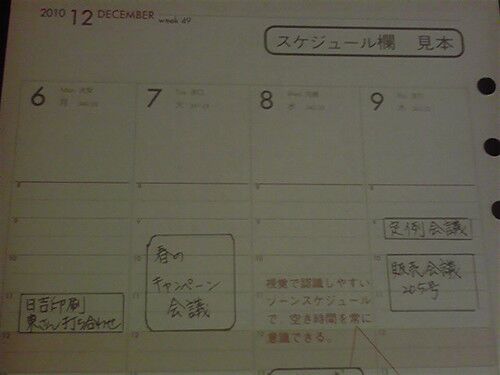 2010 12 DECEMBER week 49
スケジュール欄 見本
6 Mon 大安
月 340-25
7 Tue 赤口
火 341-24
8 Wed
水
9 Thu
木
8
8
8
9
9
9
9
定例会議
春の
キャンペーン
会議
10
10
10
10
販売会議
205号
視覚で認識しやすい
ゾーンスケジュール
で、空き時間を常に
意識できる。
11
11
11
11
日吉印刷
東さん打ち合わせ
12
12
12
12